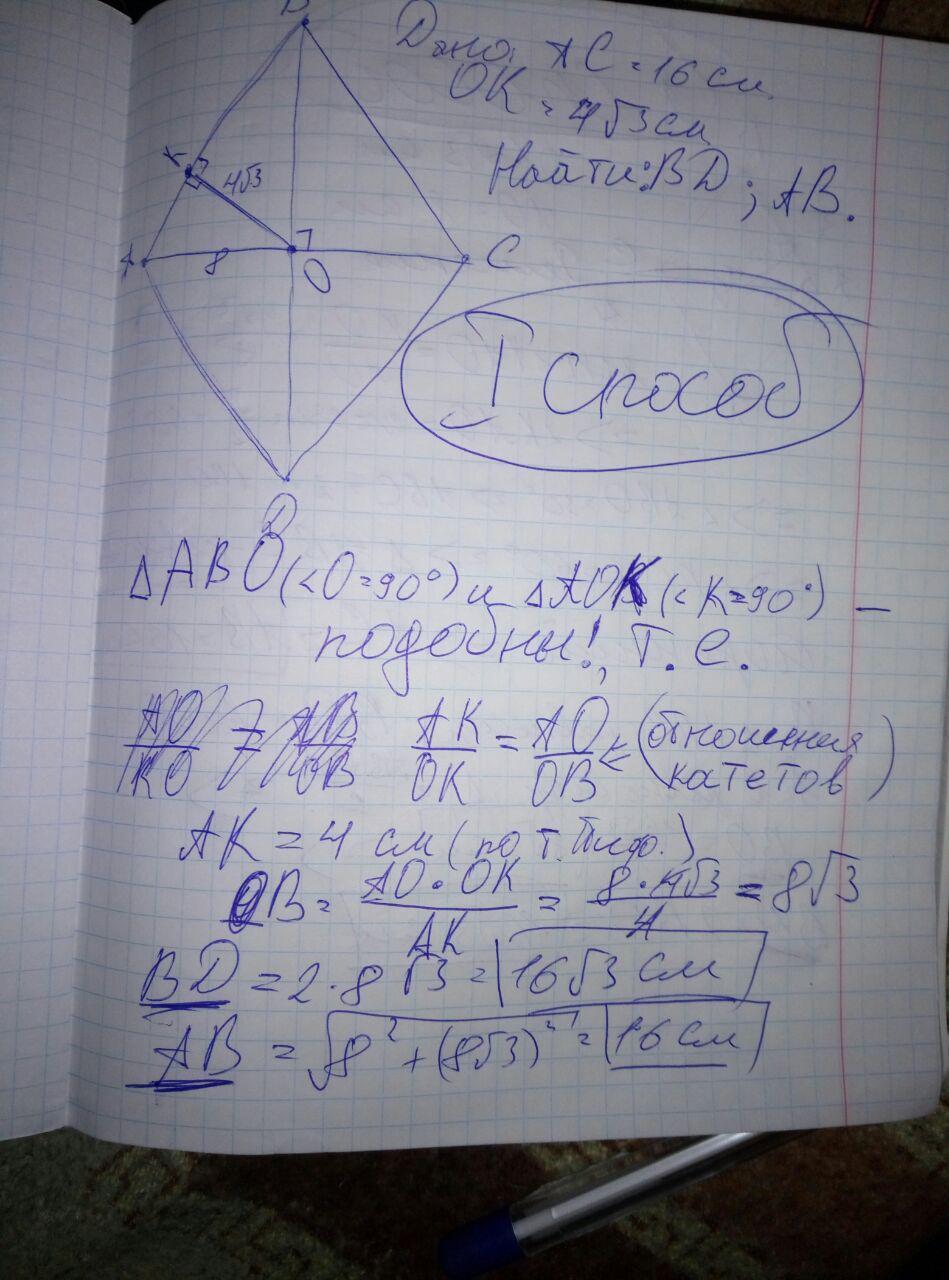 B
Дано: AC = 16 см.
OK = 4√3 см
Найти: BD; AB.
K
4√3
A
8
O
C
I способ
D
△ABO (<O=90°) и △AOK (<K=90°) —
подобны!, т.е.
AK/OK = AO/OB ⇐ (отношения катетов)
AK = 4 см (по т. Пифо.)
OB = AO·OK/AK = 8·4√3/4 = 8√3
BD = 2·8√3 = 16√3 см
AB = √8²+(8√3)² = 16 см